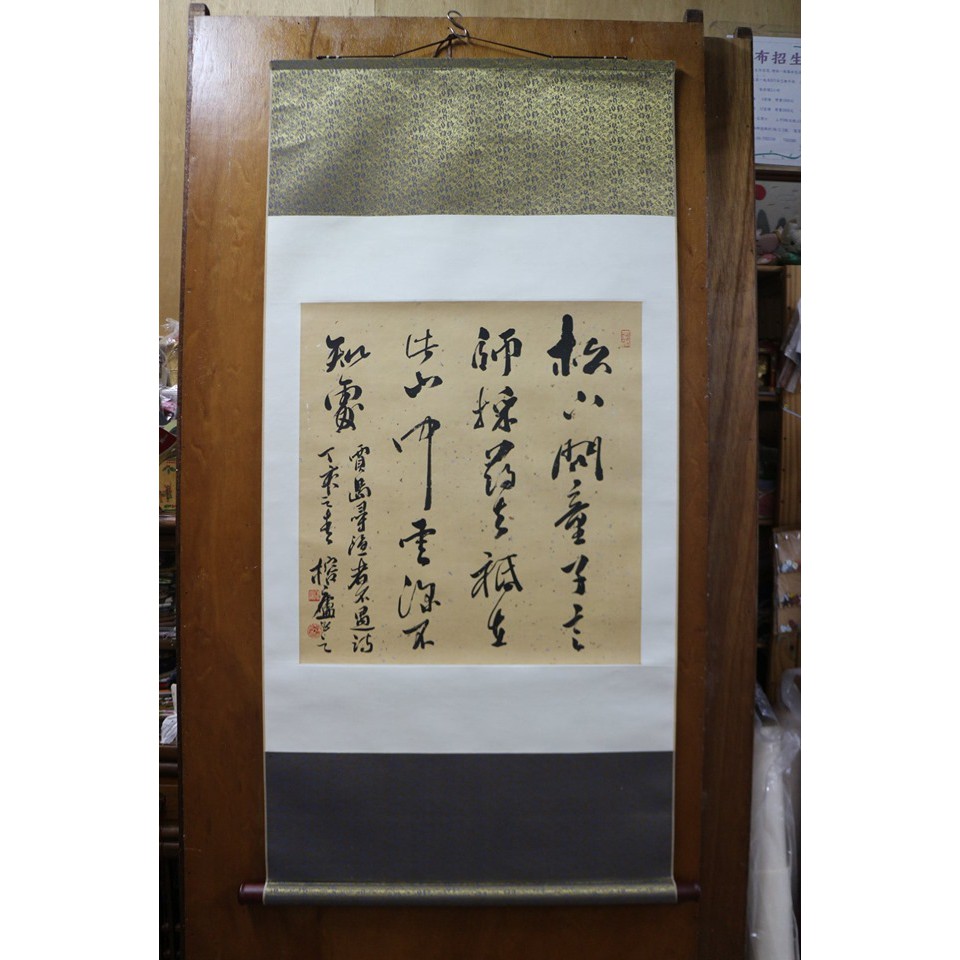 松下問童子言
師採药去祗在
此山中雲深不
知處
賈島尋隱者不遇詩
丁亥之春 榕廬書之
布招生